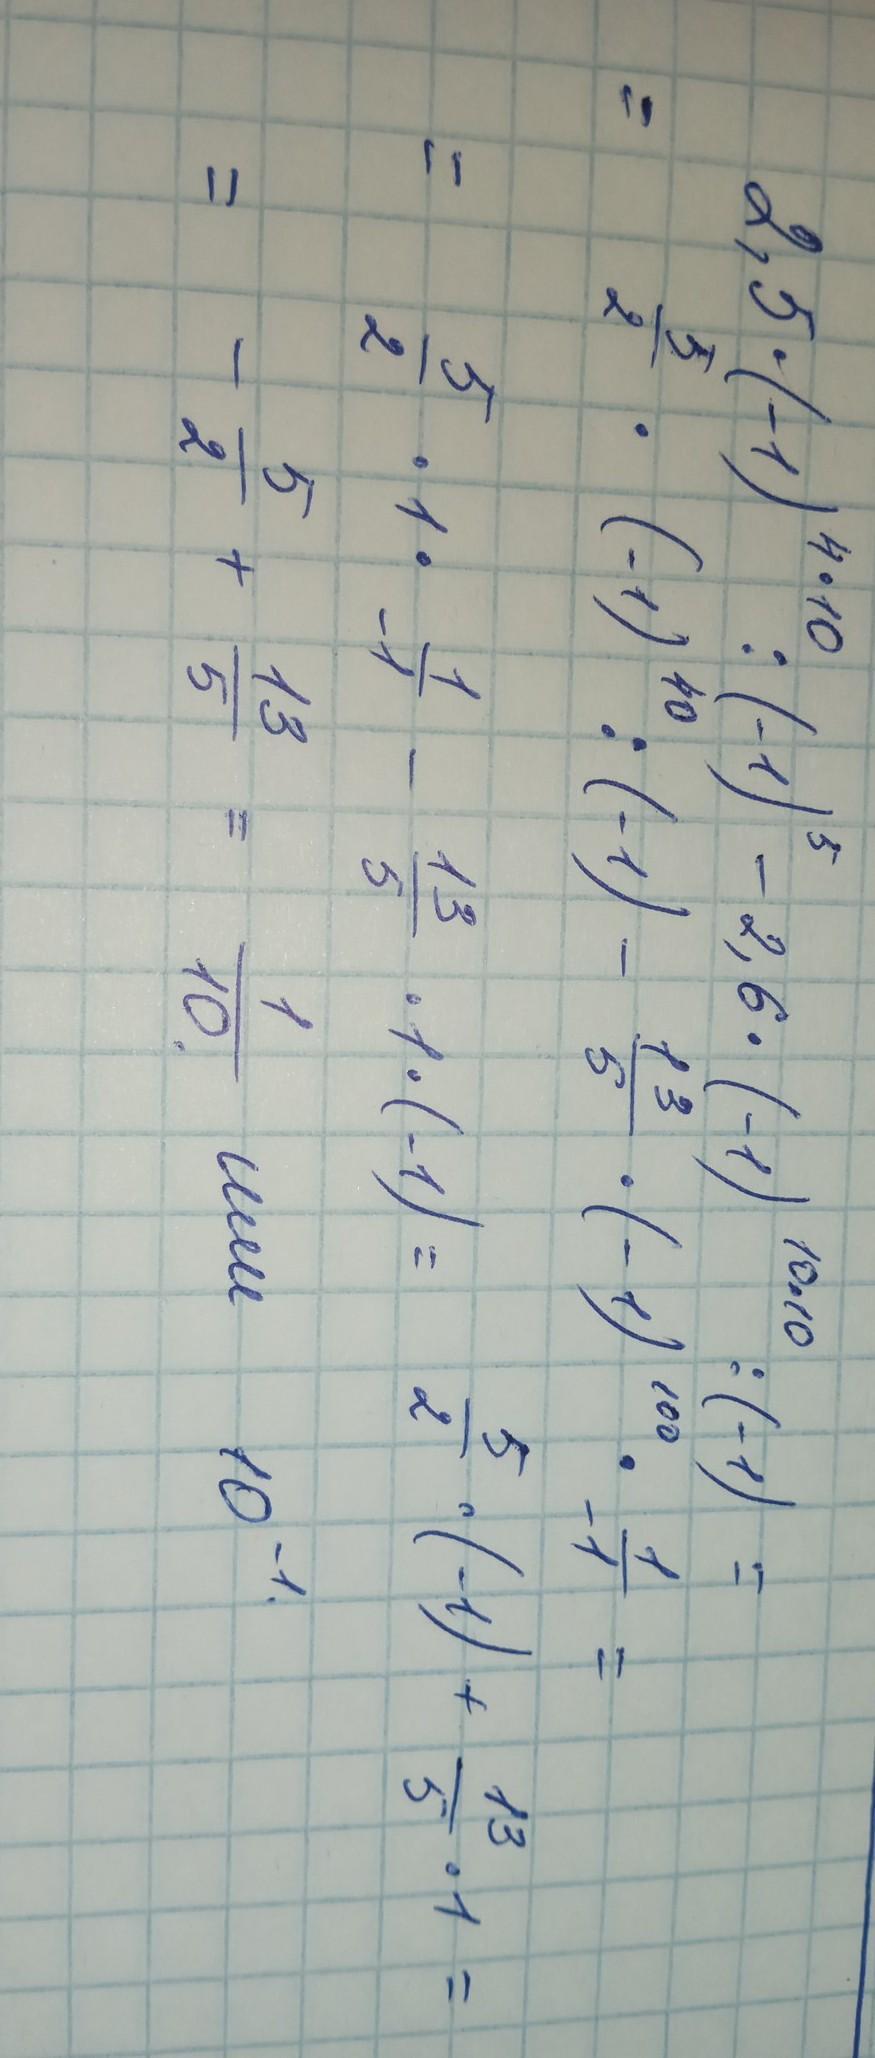 2,5·(-1)^{4·10} : (-1)^5 - 2,6·(-1)^{10·10} : (-1) =
= 5/2 · (-1)^{40} : (-1) - 13/5 · (-1)^{100} · 1/-1 =
= 5/2 · 1 · 1/-1 - 13/5 · 1·(-1) = 5/2 ·(-1) + 13/5 · 1 =
= - 5/2 + 13/5 = 1/10. или 10^{-1}.